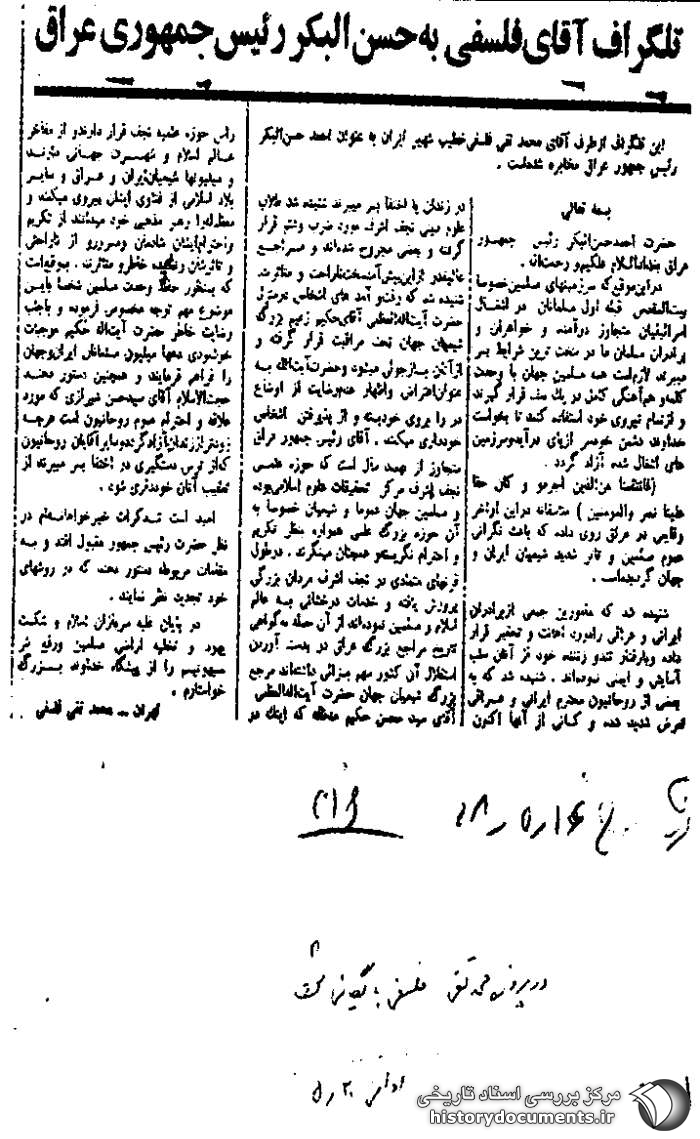 تلگراف آقای فلسفی به حسن البکر رئیس جمهوری عراق
این تلگراف ازطرف آقای محمد تقی فلسفی خطیب شهیر ایران به عنوان احمد حسن‌البکر
رئیس جمهور عراق مخابره شده‌است .
بسمه تعالی
حضرت احمدحسن‌البکر رئیس جمهور
عراق بغداد السلام علیکم و رحمت‌اله .
دراین موقع که سرزمینهای مسلمین خصوصا
بیت‌المقدس قبله اول مسلمانان در اشغال
اسرائیلیان متجاوز درآمده و خواهران و
برادران مسلمان ما در سخت ترین شرایط بسر
میبرند لازم‌است همه مسلمین جهان با وحدت
کلمه و هم‌آهنگی کامل در یک صف قرار گیرند
و ازتمام نیروی خود استفاده کنند تا بخواست
خداوند دشمن خودسر ازپای درآید و سرزمین
های اشغال شده آزاد گردد .
(فانتقمنا من‌الذین اجرمو و کان حقا
علینا نصر والمومنین ) متاسفانه دراین اواخر
وقایعی در عراق روی داده که باعث نگرانی
عموم مسلمین و تاثر شدید شیعیان ایران و
جهان گردیده‌است .
شنیده شد که مامورین جمعی ازبرادران
ایرانی و عراقی را مورد اهانت و تحقیر قرار
داده و بارفتار تند و زننده خود از آنان سلب
آسایش و ایمنی نموده‌اند . شنیده شد که به
بعضی از روحانیون محترم ایرانی و عراقی
تعرض شدید شده و کسانی از آنها اکنون
در زندان یا اختفا بسر میبرند شنیده شد طلاب
علوم دینی نجف اشرف مورد ضرب وشتم قرار
گرفته و بعضی مجروح شده‌اند و مراجع
عالیقدر ازاین پیش‌آمد سخت ناراحت و متاثرند.
شنیده شد که رفت و آمد های اشخاص درمنزل
حضرت آیت‌اله‌العظمی آقای حکیم زعیم بزرگ
شیعیان جهان تحت مراقبت قرار گرفته و
ازآنان بازجوئی میشود و حضرت آیت‌اله به
عنوان اعتراض واظهار عدم رضایت از اوضاع
در را بروی خود بسته و از پذیرفتن اشخاص
خودداری میکنند . آقای رئیس جمهور عراق
متجاوز از نهصد سال است که حوزه علمیه
نجف اشرف مرکز تحقیقات علوم اسلامی بوده
و مسلمین جهان عموما و شیعیان خصوصا به
آن حوزه بزرگ علمی همواره بنظر تکریم
و احترام نگریسته و همچنان مینگرند . درطول
قرنهای متمادی در نجف اشرف مردان بزرگی
پرورش یافته و خدمات درخشانی به عالم
اسلام و مسلمین نموده‌اند از آن جمله به گواهی
تاریخ مراجع بزرگ عراق در بدست آوردن
استقلال آن کشور سهم بسزائی داشته‌اند مرجع
بزرگ شیعیان جهان حضرت آیت‌اله‌العظمی
آقای سید محسن حکیم مدظله که اینک در
راس حوزه علمیه نجف قرار دارند و از مفاخر
عالم اسلام و شهرت جهانی
و میلیونها شیعیان ایران و عراق و سایر
بلاد اسلامی از فتوای ایشان پیروی میکنند و
معظم‌له را رهبر مذهبی خود میدانند از تکریم
واحترام ایشان شادمان و مسرور و از ناراحتی
و تاثرشان رنجیده خاطر و متاثرند . بموقع است
که بمنظور حفظ وحدت مسلمین شخصا باین
موضوع مهم توجه مخصوص فرموده و باجلب
رضایت خاطر حضرت آیت‌اله حکیم موجبات
خوشنودی دهها میلیون مسلمانان ایران و جهان
را فراهم فرمایند و همچنین دستور دهند
حجت‌الاسلام آقای سیدحسن شیرازی که مورد
علاقه و احترام عموم روحانیون است هرچه
زودتر از زندان آزاد گردد و سایر آقایان روحانیون
که از ترس دستگیری در اختفا بسر میبرند از
تعقیب آنان خودداری شود .
امید است تذکرات خیرخواهانه‌ام در
نظر حضرت رئیس جمهور مقبول افتد و به
مقامات مربوطه دستور دهند که در روشهای
خود تجدید نظر نمایند .
در پایان غلبه سربازان اسلام و شکست
یهود و تخلیه اراضی مسلمین ورفع شر
صهیونیسم را از پیشگاه خداوند بزرگ
خواستارم .
تهران ــ محمد تقی فلسفی
مرکز بررسی اسناد تاریخی
historydocuments.ir